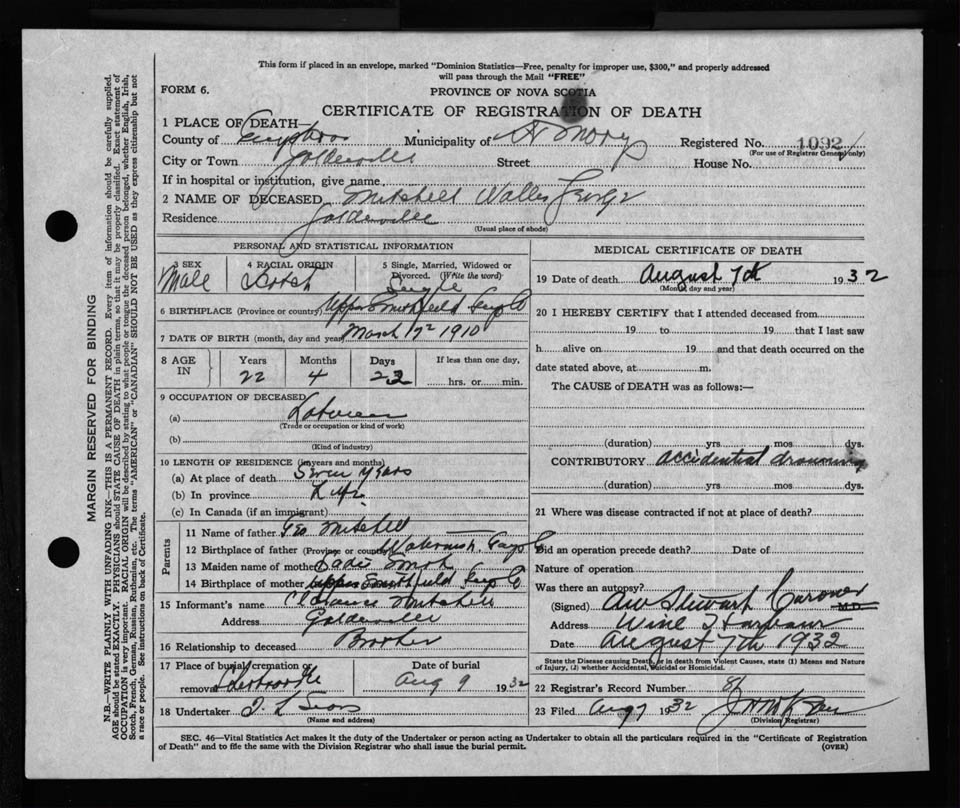 This form if placed in an envelope, marked "Dominion Statistics—Free, penalty for improper use, $300," and properly addressed
will pass through the Mail "FREE"
FORM 6.
PROVINCE OF NOVA SCOTIA
CERTIFICATE OF REGISTRATION OF DEATH
1 PLACE OF DEATH—
County of Municipality of St Mary's Registered No. 1092
(For use of Registrar General only)
City or Town Goldenville Street House No.
If in hospital or institution, give name
2 NAME OF DECEASED Mitchell Walles George
Residence Goldenville
(Usual place of abode)
PERSONAL AND STATISTICAL INFORMATION
3 SEX
Male
4 RACIAL ORIGIN
Scotch
5 Single, Married, Widowed or
Divorced. (Write the word)
Single
6 BIRTHPLACE (Province or country) Upper Smithfield Guys Co
7 DATE OF BIRTH (month, day and year) March 1910
8 AGE
IN
Years
22
Months
4
Days
If less than one day,
hrs. or min.
9 OCCUPATION OF DECEASED
(a) Laborer
(Trade or occupation or kind of work)
(b)
(Kind of industry)
10 LENGTH OF RESIDENCE (in years and months)
(a) At place of death Seven years
(b) In province Life
(c) In Canada (if an immigrant)
Parents
11 Name of father Geo Mitchell
12 Birthplace of father (Province or country) Guys Co
13 Maiden name of mother Sadie
14 Birthplace of mother Upper Smithfield Guys Co
15 Informant's name Clarence Mitchell
Address Goldenville
16 Relationship to deceased Brother
17 Place of burial, cremation or
removal Sherbrooke
Date of burial
Aug 9 1932
18 Undertaker
(Name and address)
MEDICAL CERTIFICATE OF DEATH
19 Date of death August 7th 1932
(Month, day and year)
20 I HEREBY CERTIFY that I attended deceased from
19 to 19 that I last saw
h alive on 19 and that death occurred on the
date stated above, at m.
The CAUSE of DEATH was as follows:—
(duration) yrs. mos. dys.
CONTRIBUTORY accidential drowning
(duration) yrs. mos. dys.
21 Where was disease contracted if not at place of death?
Did an operation precede death? Date of
Nature of operation
Was there an autopsy?
(Signed) Stewart Coroner M.D.
Address Wine Harbour
Date August 7th 1932
State the Disease causing Death, or in death from Violent Causes, state (1) Means and Nature
of Injury, (2) whether Accidental, Suicidal or Homicidal.
22 Registrar's Record Number
23 Filed Aug 7 1932
(Division Registrar)
SEC. 46—Vital Statistics Act makes it the duty of the Undertaker or person acting as Undertaker to obtain all the particulars required in the "Certificate of Registration
of Death" and to file the same with the Division Registrar who shall issue the burial permit.
(OVER)
MARGIN RESERVED FOR BINDING
N.B.—WRITE PLAINLY WITH UNFADING INK—THIS IS A PERMANENT RECORD. Every item of information should be carefully supplied.
AGE should be stated EXACTLY. PHYSICIANS should STATE CAUSE OF DEATH in plain terms, so that it may be properly classified. Exact statement of
OCCUPATION is very important. RACIAL ORIGIN will be described by stating to what people or tongue the deceased person belonged, whether English, Irish,
Scotch, French, German, Russian, Ruthenian, etc. The terms "AMERICAN" or "CANADIAN" SHOULD NOT BE USED as they express citizenship but not
a race or people. See instructions on back of Certificate.